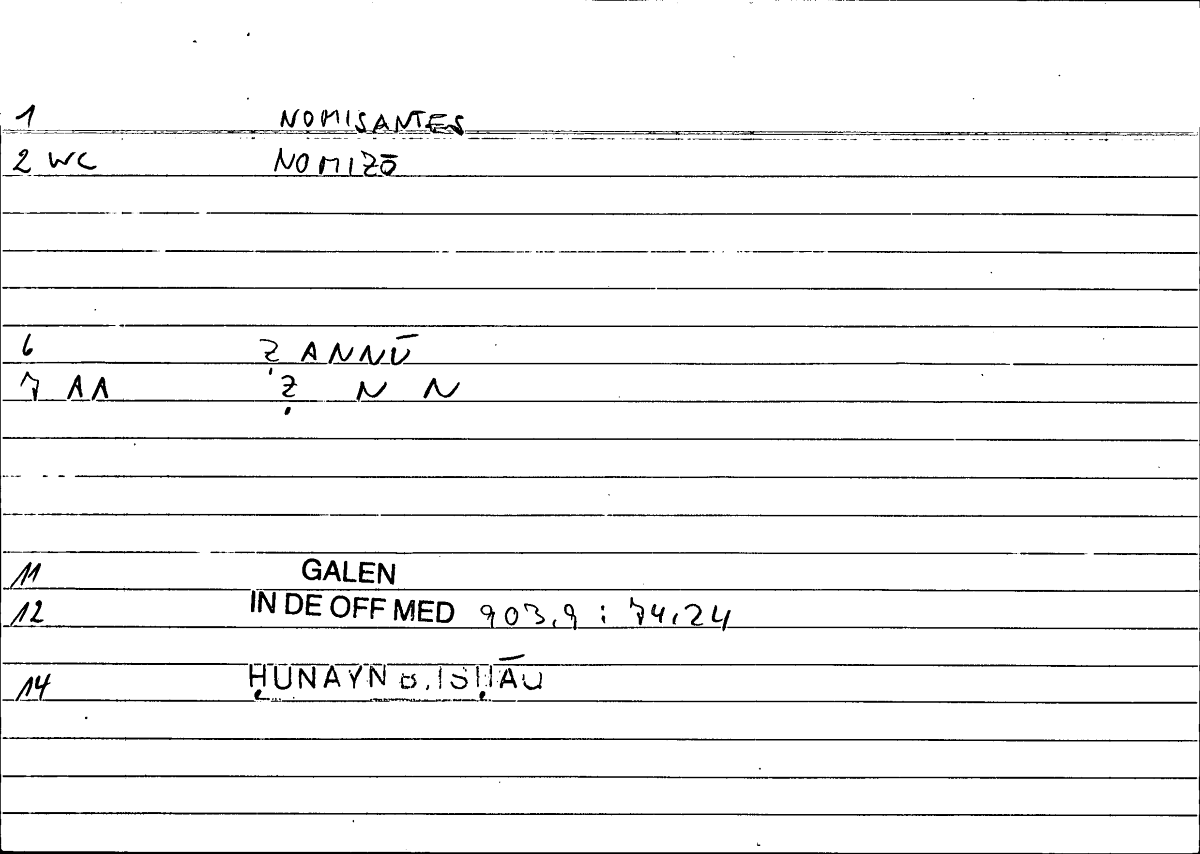 1 NOMISANTES
2 WC NOMIZŌ
6 ẒANNŪ
7 AA Ẓ N N
11 GALEN
12 IN DE OFF MED 903,9 : 74,24
14 ḤUNAYN B. ISḤĀQ